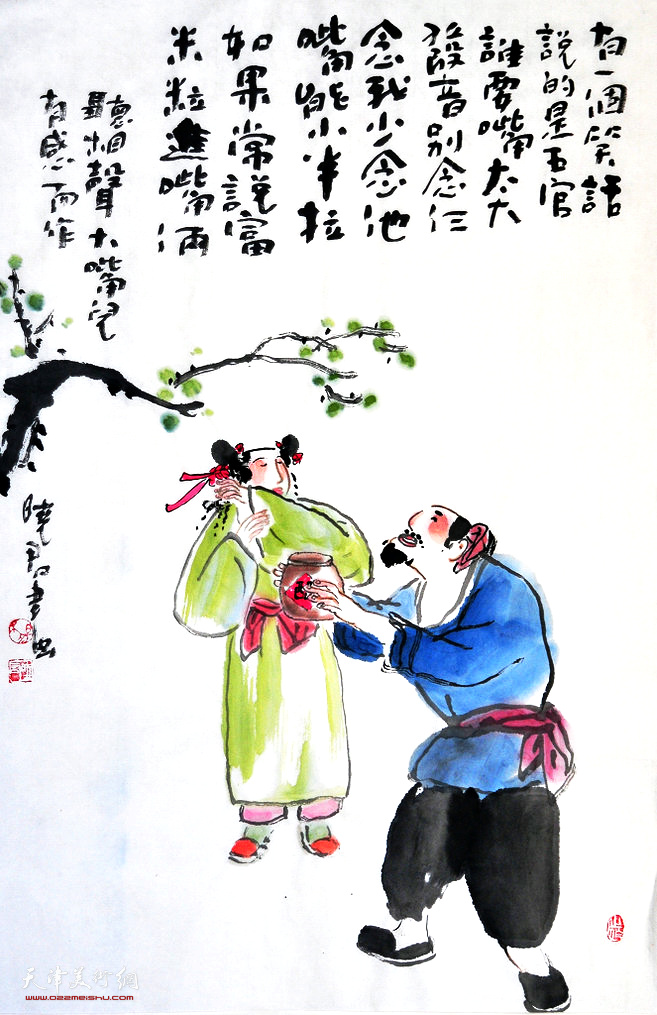 有一個笑話
說的是五官
誰要嘴太大
發音别念仨
念我少念他
嘴能小半拉
如果常說富
米粒進嘴倆
聽相聲大嘴兒
有感而作
曉君書画
天津美术网
www.022meishu.com